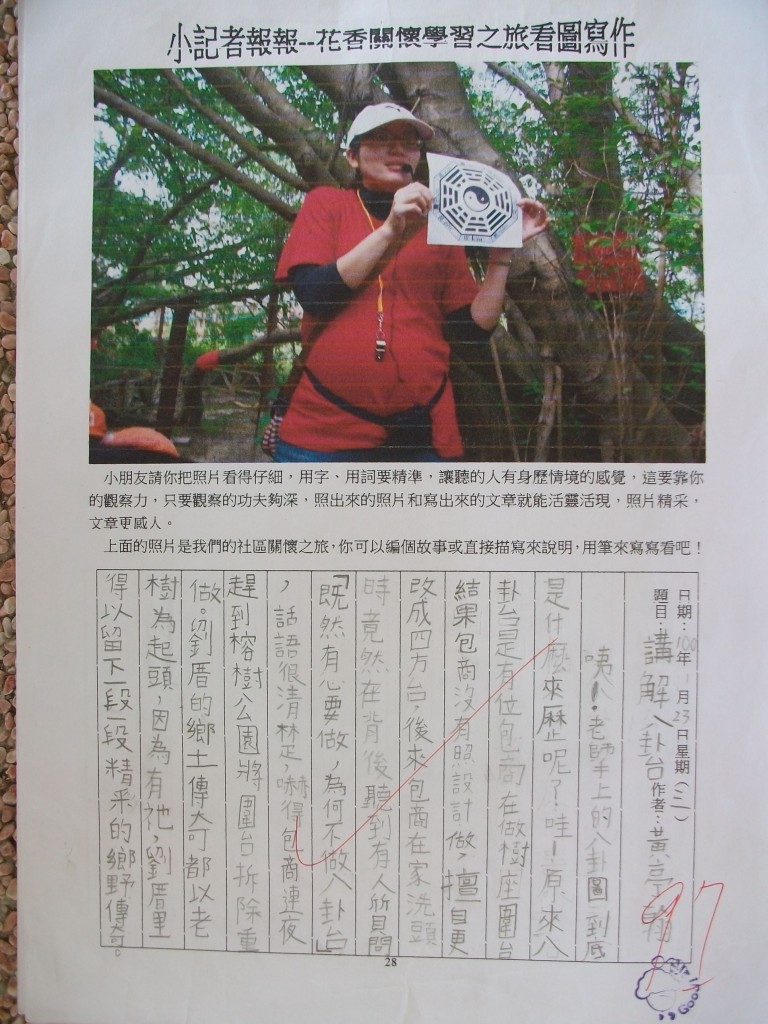 小記者報報--花香關懷學習之旅看圖寫作
小朋友請你把照片看得仔細，用字、用詞要精準，讓聽的人有身歷情境的感覺，這要靠你
的觀察力，只要觀察的功夫夠深，照出來的照片和寫出來的文章就能活靈活現，照片精采，
文章更感人。
上面的照片是我們的社區關懷之旅，你可以編個故事或直接描寫來說明，用筆來寫寫看吧！
日期：100年 月23日星期（二）
題目：講解八卦台作者：黃亭翰
咦！老師手上的八卦圖到底
是什麼來歷呢？哇！原來八
卦台是有位包商在做樹座圍台
結果包商沒有照設計做，擅自更
改成四方台，後來包商在家洗頭
時竟然在背後聽到有人質問
「既然有心要做，為何不做八卦台」
，話語很清楚，嚇得包商連夜
趕到榕樹公園將圍台拆除重
做。劉厝的鄉土傳奇都以老
樹為起頭，因為有祂，劉厝里
得以留下一段段精采的鄉野傳奇。
97
Good
28